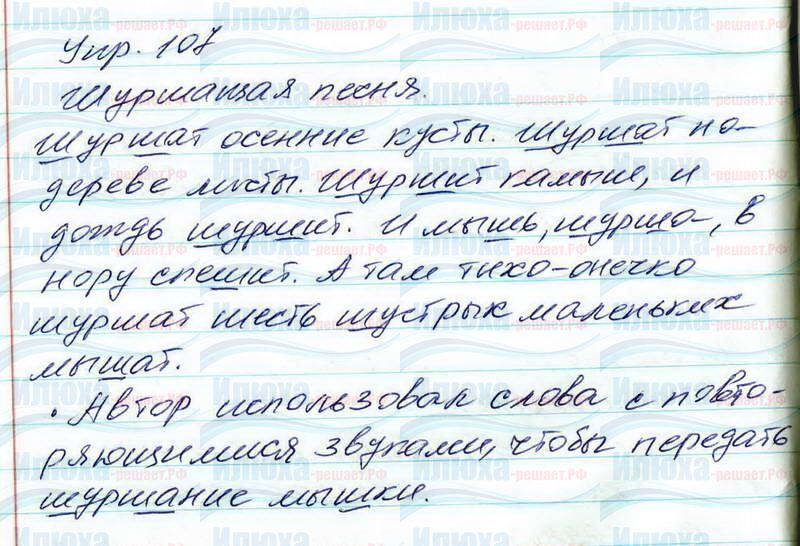 Упр. 107
Шуршащая песня.
Шуршат осенние кусты. Шуршат на
дереве листы. Шуршит камыш, и
дождь шуршит. И мышь, шурша, в
нору спешит. А там тихо-онечко
шуршат шесть шустрых маленьких
мышат.
• Автор использовал слова с повто-
ряющимися звуками, чтобы передать
шуршание мышки.
Илюха-решает.РФ